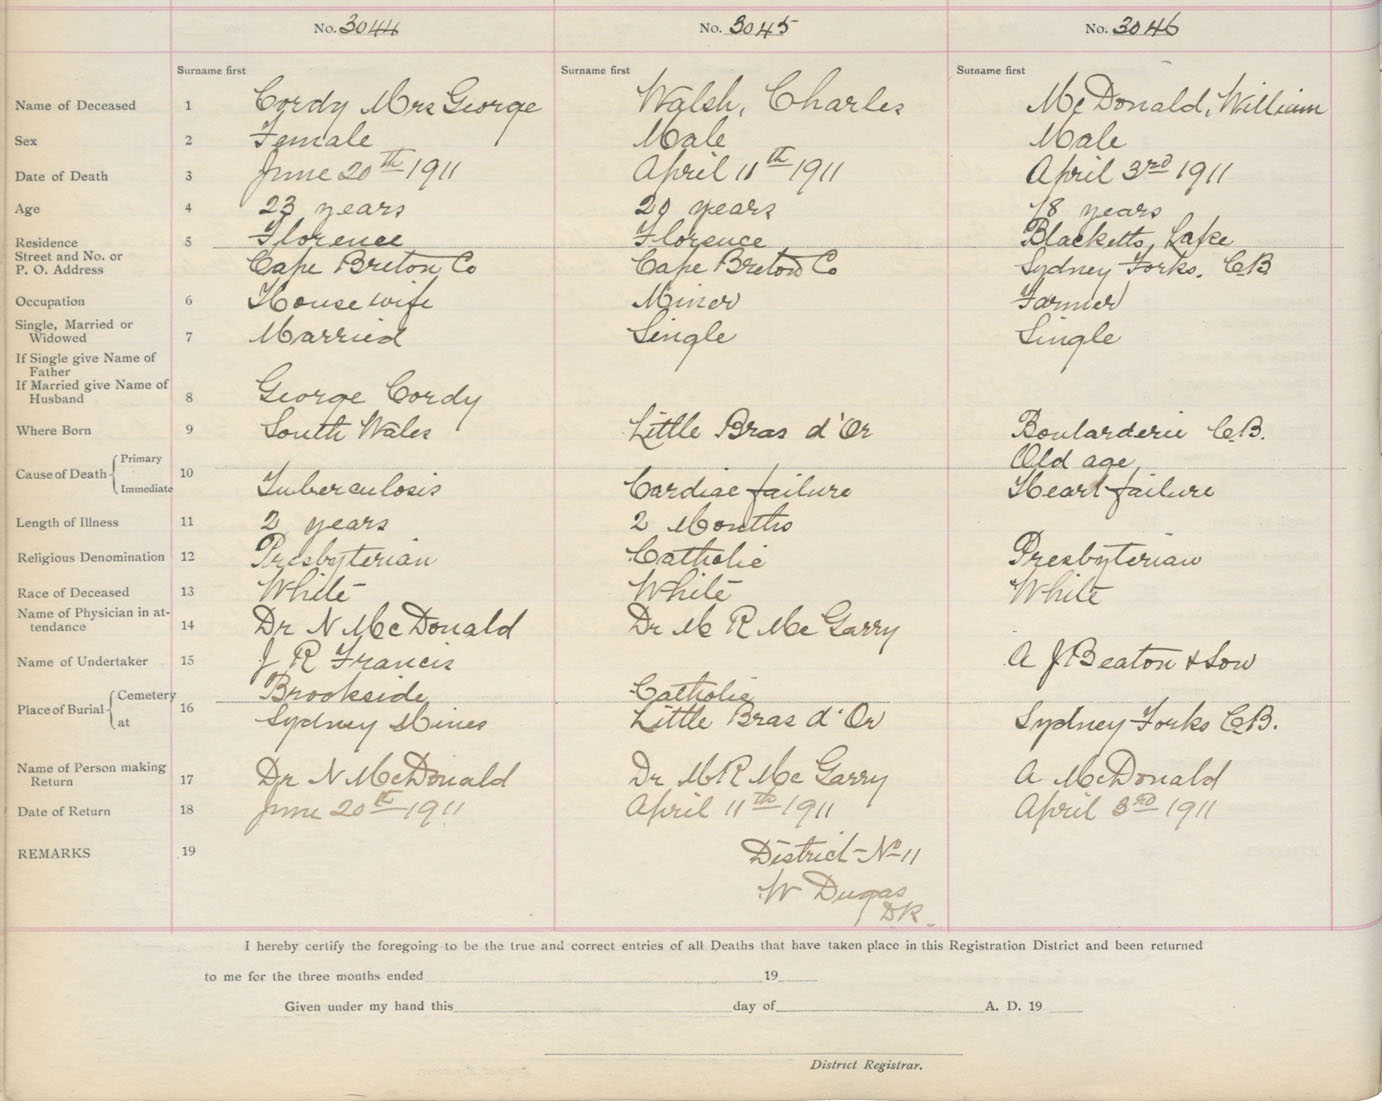 No. 3044 No. 3045 No. 3046
Surname first Surname first Surname first
Name of Deceased 1 Cordy Mrs George Walsh, Charles McDonald, William
Sex 2 Female Male Male
Date of Death 3 June 20th 1911 April 11th 1911 April 3rd 1911
Age 4 23 years 29 years 78 years
Residence 5 Florence Florence Blacketts, Lake
Street and No. or
P. O. Address Cape Breton Co Cape Breton Co Sydney Forks. C.B
Occupation 6 Housewife Miner Farmer
Single, Married or
Widowed 7 Married Single Single
If Single give Name of
Father
If Married give Name of
Husband 8 George Cordy
Where Born 9 South Wales Little Bras d'Or Boularderie C.B.
Cause of Death Primary 10 Old age,
Immediate Tuberculosis Cardiac failure Heart failure
Length of Illness 11 2 years 2 Months
Religious Denomination 12 Presbyterian Catholic Presbyterian
Race of Deceased 13 White White White
Name of Physician in at-
tendance 14 Dr N McDonald Dr M R McGarry
Name of Undertaker 15 J R Francis A J Beaton & Son
Place of Burial Cemetery 16 Brookside Catholic
at Sydney Mines Little Bras d'Or Sydney Forks C.B.
Name of Person making
Return 17 Dr N McDonald Dr M R McGarry A McDonald
Date of Return 18 June 20th 1911 April 11th 1911 April 3rd 1911
REMARKS 19 District No 11
W Dugas
D.R.
I hereby certify the foregoing to be the true and correct entries of all Deaths that have taken place in this Registration District and been returned
to me for the three months ended 19
Given under my hand this day of A. D. 19
District Registrar.